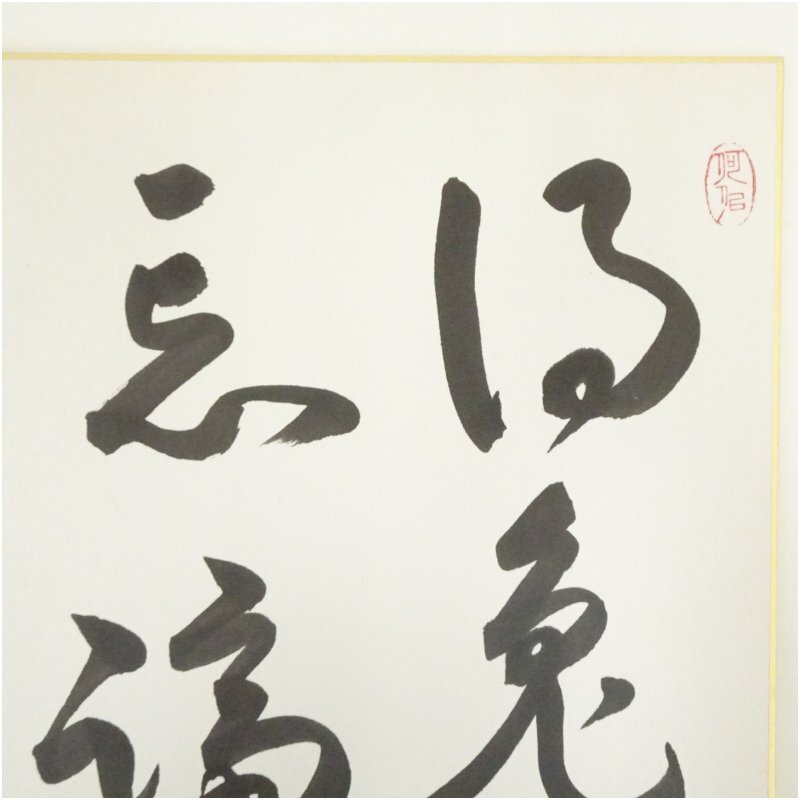 得兎
忘蹄